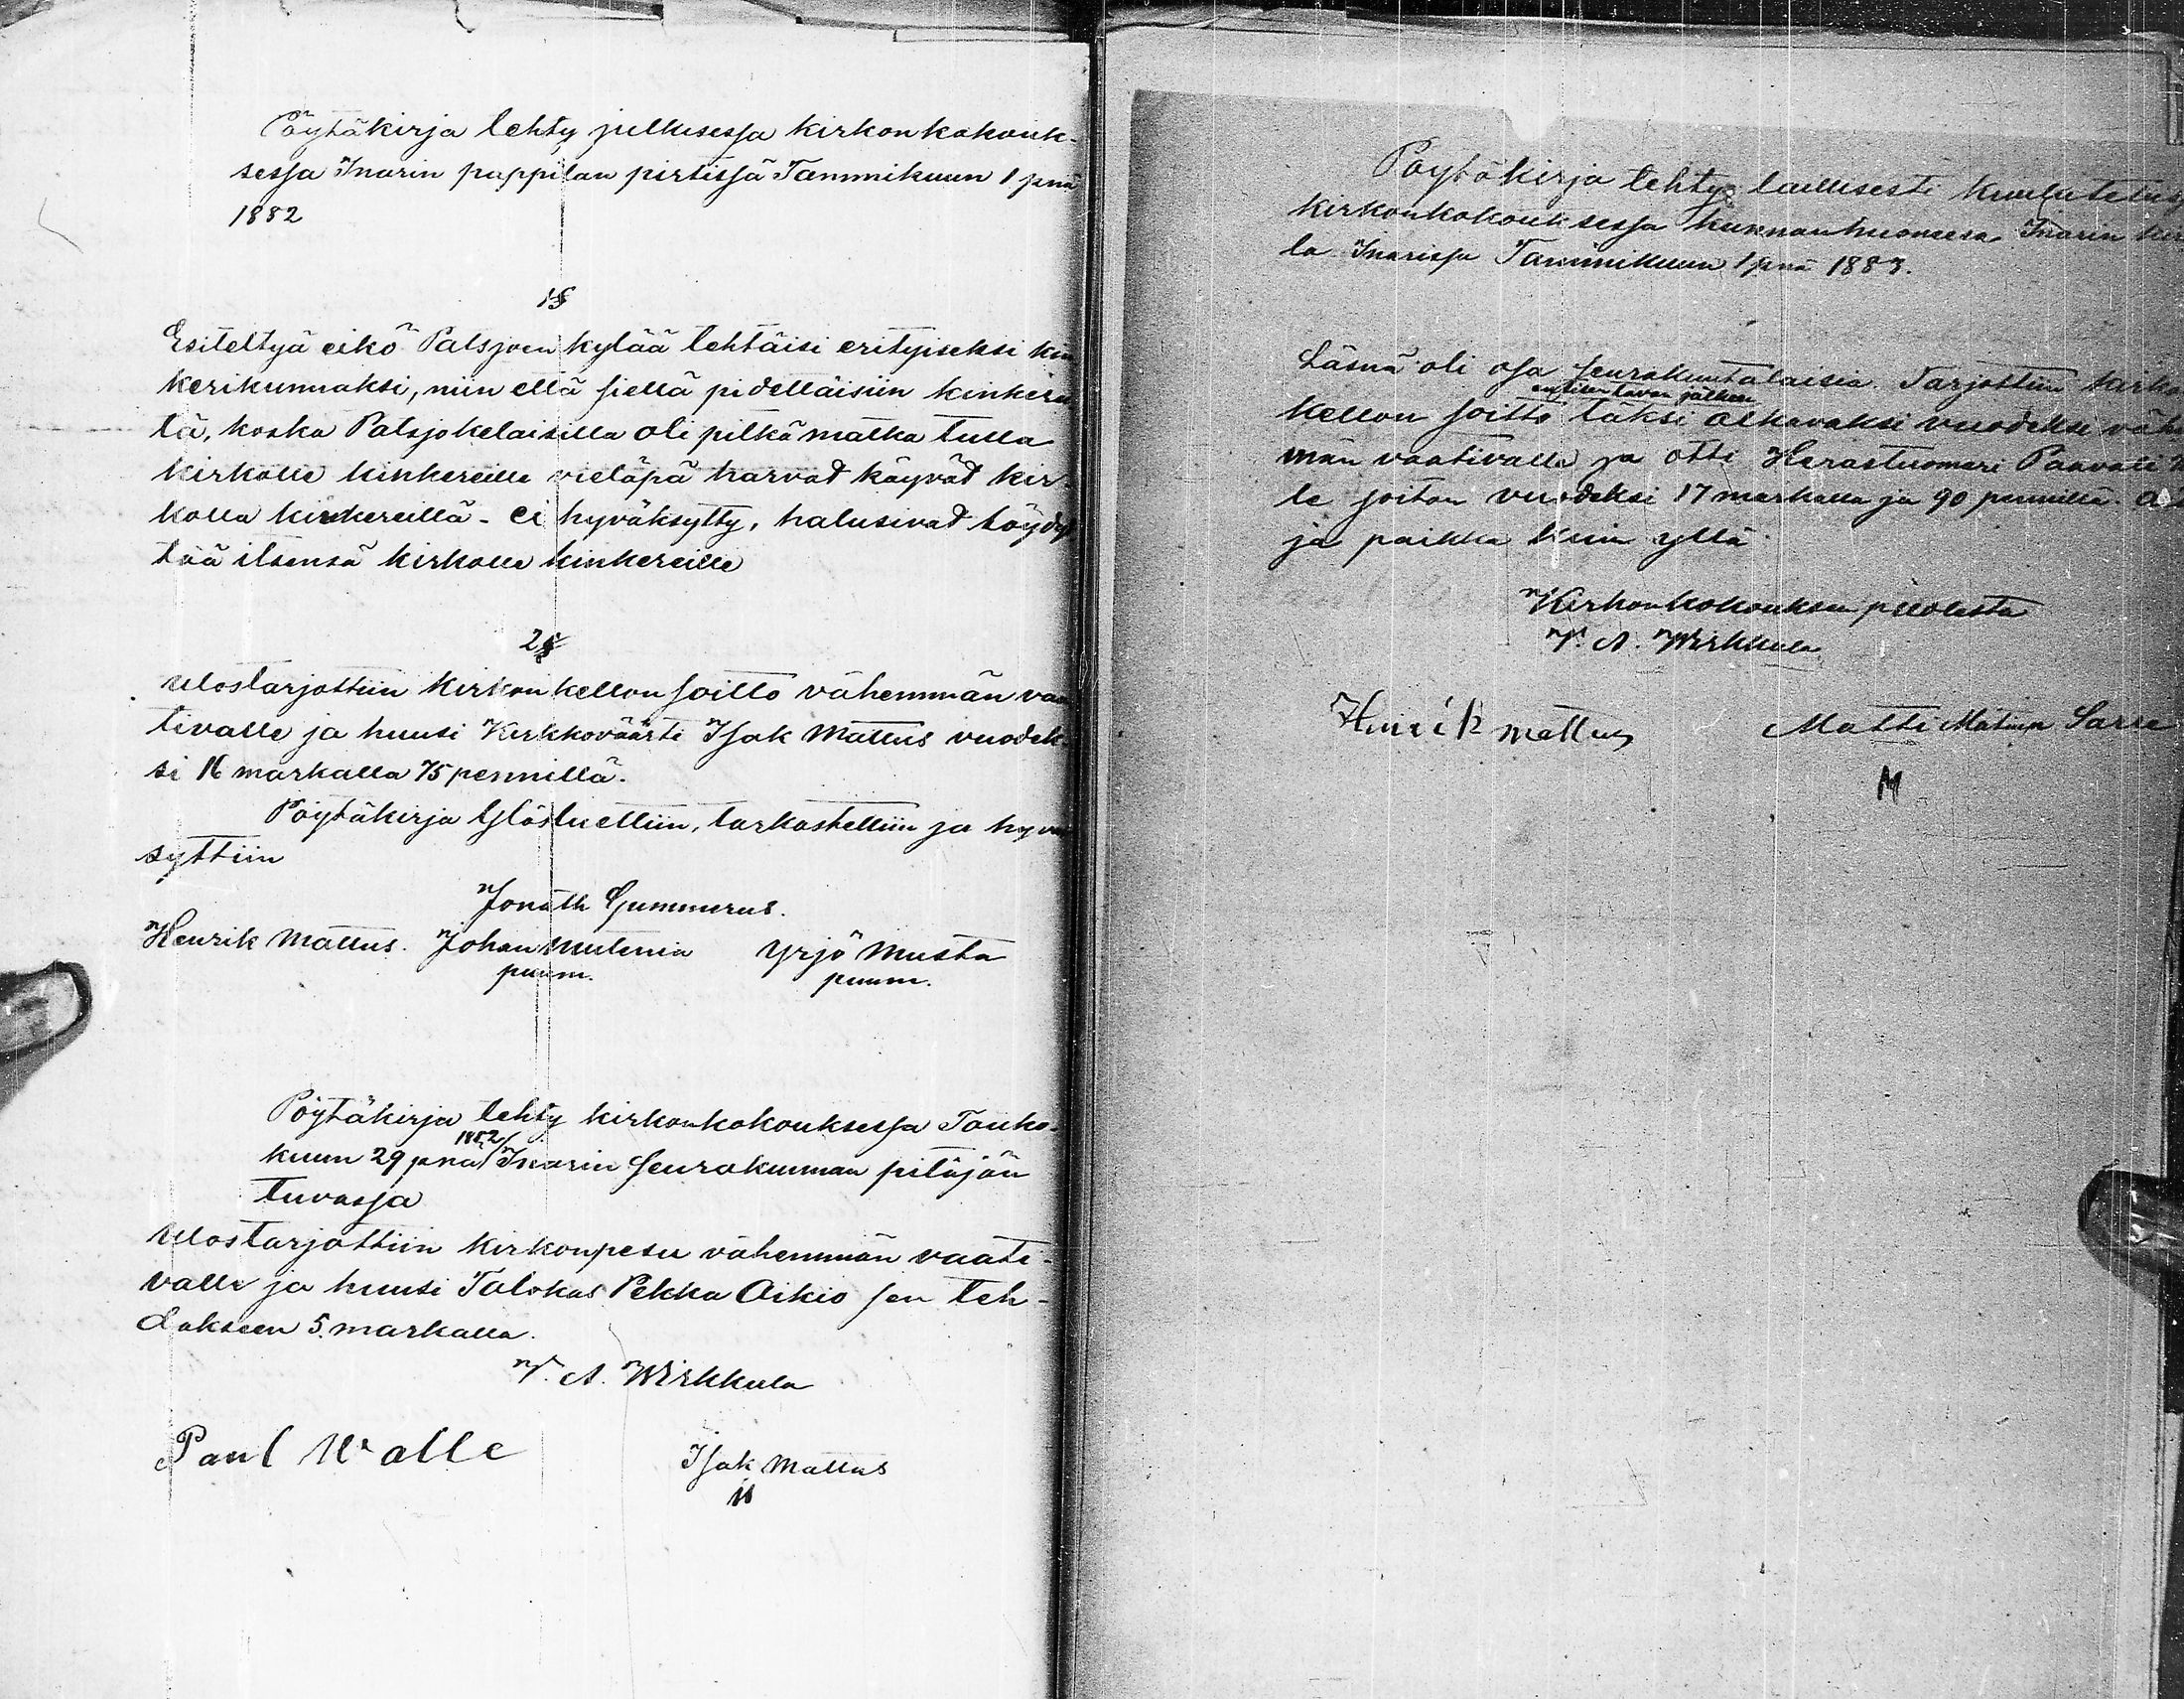 Pöytäkirja tehty julkisessa kirkonkokouk-
sessa Inarin pappilan pirtissä Tammikuun 1 pnä
1882
1 §
Esiteltyä eikö Patsjoen kylää tehtäisi erityiseksi kin
kerikunnaksi, niin että siellä pidettäisiin kinkeri
tä, koska Patsjokelaisilla oli pitkä matka tulla
kirkolle kinkereille vieläpä harvat käyvät kir-
kolla kinkereillä - ei hyväksytty, halusivat löydyt
tää itsensä kirkolle kinkereille
2 §
Ulostarjottiin kirkonkellon soitto vähemmän vaa
tivalle ja huusi Kirkkoväärti Isak Mattus vuodek-
si 16 markalla 75 pennillä.
Pöytäkirja ylösluettiin, tarkastettiin ja hyväk
syttiin
Jonath Gummerus.
Henrik Mattus. Johan Mutenia Yrjö Musta
puum. puum.
Pöytäkirja tehty kirkonkokouksessa Touko-
kuun 29 pnä 1882 Inarin seurakunnan pitäjän
tuvassa
Ulostarjottiin kirkonpesu vähemmän vaati-
valle ja huusi Talokas Pekka Aikio sen teh-
däkseen 5 markalla.
V. A. Wirkkula
Paul Walle Isak Mattus
M
Pöytäkirja tehty laillisesti kuulutetussa
kirkonkokouksessa kunnanhuoneessa Inarin
la Inarissa Tammikuun 1 pnä 1883.
Läsnä oli osa seurakuntalaisia. Tarjottiin kirkon
entisen tavan jälkeen
kellon soitto täksi alkavaksi vuodeksi vähe
män vaativalle ja otti Herastuomari Paavali
le soiton vuodeksi 17 markalla ja 90 pennillä.
ja paikka kuin yllä
Kirkonkokouksen puolesta
V. A. Wirkkula
Henrik mattus Matti Matinp Sarre
M